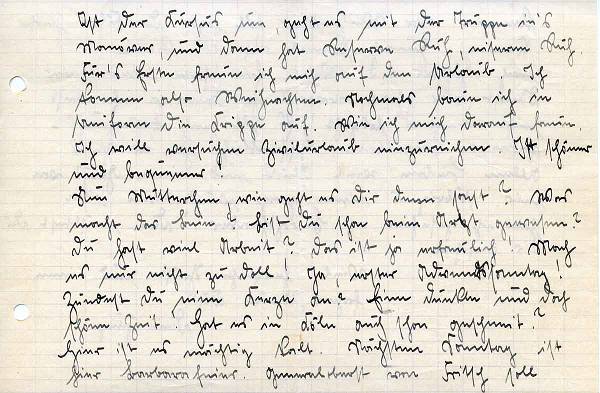 Ist der Kursus um, geht es mit der Truppe in's
Manöver, und dann hat Reserve Ruh, unserm Ruh.
Für's Erste freun ich mich auf den Urlaub. Ich
komme also Weihnachten. Nochmals baun ich in
Uniform die Krippe auf. Wie ich mich darauf freue.
Ich will versuchen Zivilurlaub einzureichen. Ist schöner
und bequemer
Nun Mutterchen, wie geht es dir denn sonst? Was
macht das Bein? Bist du schon beim Arzt gewesen?
Du hast viel Arbeit? Das ist ja erfreulich! Mach
es nur nicht zu doll! Ja, erster Adventssonntag!
Zündest du eine Kerze an? Eine dunkle und doch
schöne Zeit. Hat es in Köln auch schon geschneit?
Hier ist es mächtig kalt. Nächsten Sonntag ist
hier Barbarafeier. Generaloberst von Fritsch soll